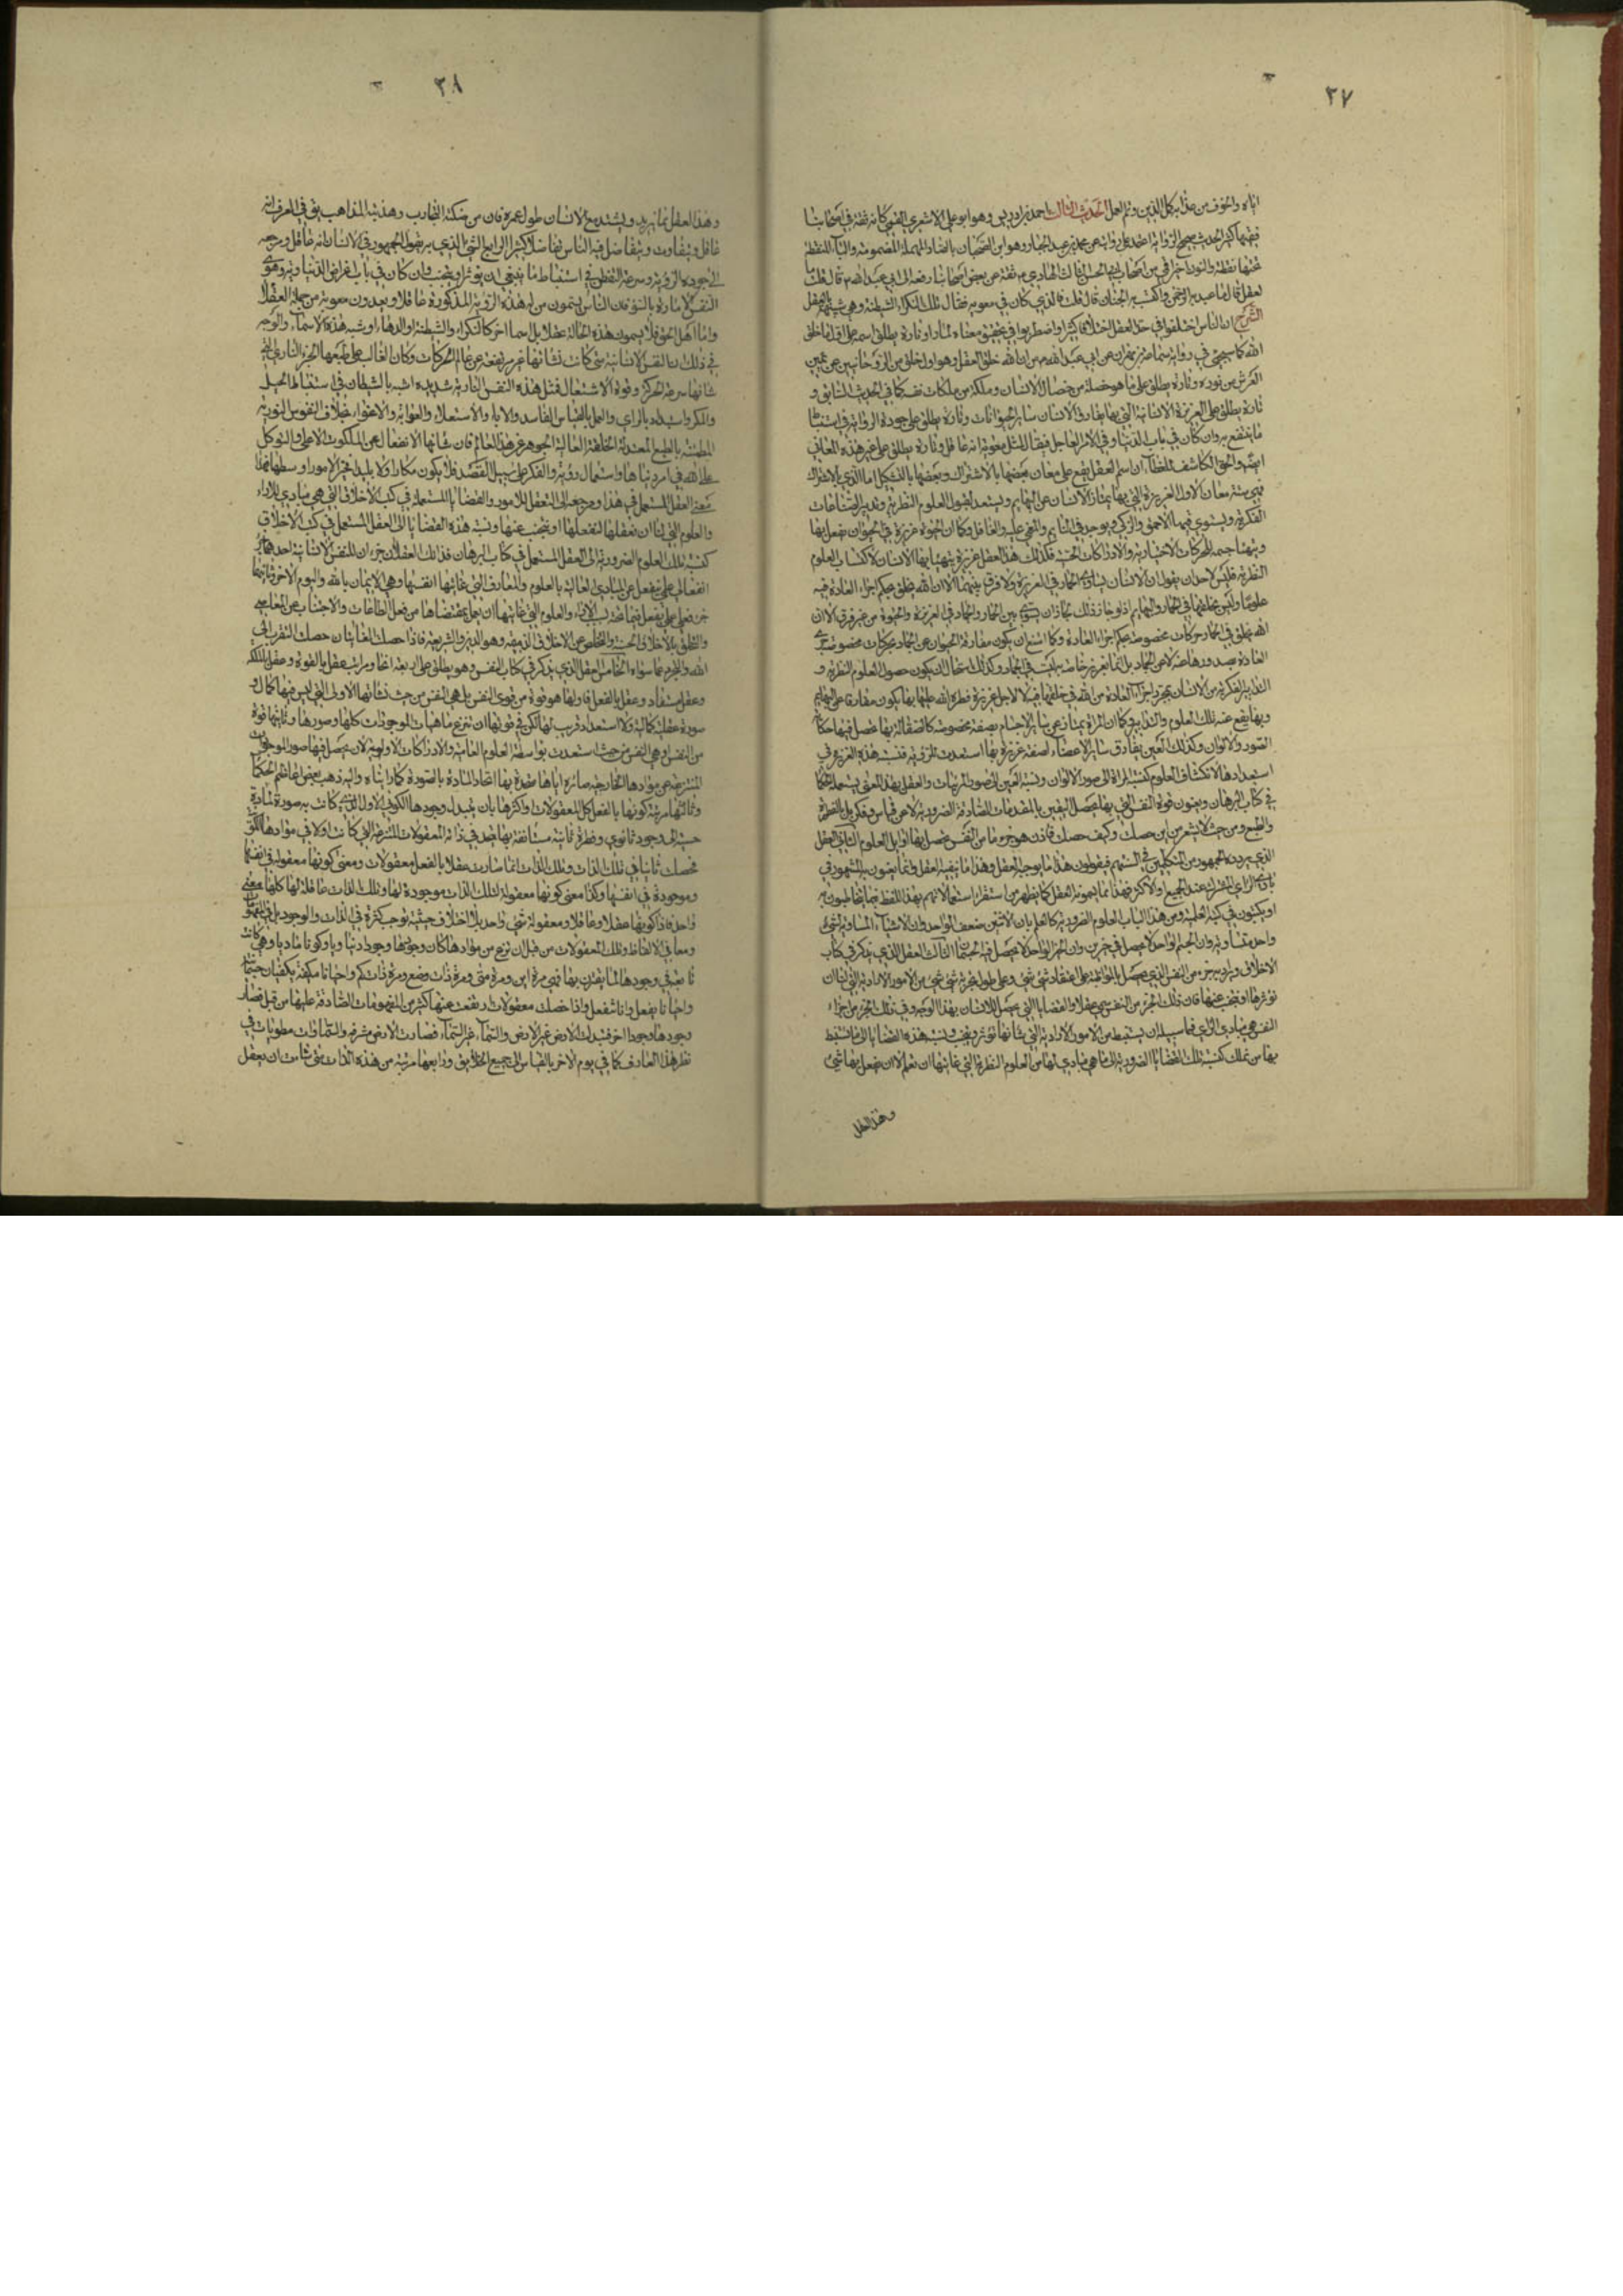 ٣٧
اياه والخوف من عذابه كل الدين وتم العمل الحديث الثالث احمد بن ادريس وهو ابو علي الاشعري القمي كان ثقة في اصحابنا
فقيها كثير الحديث صحيح الرواية عن محمد بن عبد الجبار وهو ابن ابي الصهبان بالصاد المهملة المضمومة والباء المنقطة
تحتها نقطة والنون اخيرا قمي من اصحاب ثقة عن بعض اصحابنا رفعه الى ابي عبد الله قال قلت ما
العقل قال ما عبد به الرحمن واكتسب به الجنان قال قلت فالذي كان في معوية فقال تلك النكراء تلك الشيطنة وهي شبيهة بالعقل
الشرح ان الناس اختلفوا في حد العقل اختلافا كثيرا واضطربوا في تحقيق معناه وتارة يطلق اسمه على اول ما خلق
الله كما سيجئ في رواية سماعة بن مهران عن ابي عبد الله من ان الله خلق العقل وهو اول خلق من الروحانيين عن يمين
العرش من نوره وتارة يطلق على ما هو خصلة من خصال الانسان وملكة من ملكات نفسه كما في الحديث السابق و
تارة يطلق على الغريزة الانسانية التي بها يفارق الانسان ساير الحيوانات وتارة يطلق على جودة الروية في استنباط
ما ينتفع به وان كان في باب الدنيا وفي الامر العاجل فيقال لمثل معوية انه عاقل وتارة يطلق على غير هذه المعاني
ايضا والحق الكاشف للغطاء ان اسم العقل يقع على معان بعضها بالاشتراك وبعضها بالتشكيك اما الذي بالاشتراك
فهي ستة معان الاول الغريزة التي بها يمتاز الانسان عن البهايم ويستعد لقبول العلوم النظرية وتدبير الصناعات
الفكرية ويستوي فيها الاحمق والذكي ويوجد في النايم والمغمى عليه والغافل وكما ان الحيوة غريزة في الحيوان يفعل بها
ويتهيأ جسمه للحركات الاختيارية والادراكات الحسية فكذلك هذا العقل غريزة يتهيأ بها الانسان لاكتساب العلوم
النظرية فليس لاحد ان يقول ان الانسان يساوي الحمار في الغريزة ولا فرق بينهما الا ان الله يخلق بحكم اجراء العادة فيه
علوما وليس يخلقها في الحمار والبهايم اذ لو جاز ذلك لجاز ان يسوى بين الحمار والجماد في الغريزة والحيوة من غير فرق الا ان
الله يخلق في الحمار حركات مخصوصة بحكم اجراء العادة وكما امتنع ان يكون مفارقة الحيوان عن الجماد بحركات مخصوصة
من الله في خلقها فيه لا لاجل غريزة فطره الله عليها بها يكون مفارقا عن البهايم
وبها يقع عنه تلك العلوم والتدابير وكما ان المرآة يمتاز عن ساير الاجسام بصفة مخصوصة كالصقالة بها تحصل فيها حكاية
الصور والالوان وكذلك العين يفارق ساير الاعضاء لصفة غريزة بها استعدت للرؤية فنسبة هذه الغريزة في
استعدادها لانكشاف العلوم كنسبة المرآة الى صور الالوان ونسبة العين الى صور المرئيات والعقل بهذا المعنى يستعمله الحكماء
في كتاب البرهان ويعنون به قوة النفس التي بها يحصل اليقين بالمقدمات الصادقة الضرورية لا عن قياس وفكر بل بالفطرة
والطبع ومن حيث لا يشعر من اين حصلت وكيف حصلت فاذن هو جزء ما من النفس يحصل بها اوايل العلوم الثاني العقل
الذي يردده الجمهور من المتكلمين في السنتهم فيقولون هذا ما يوجبه العقل وهذا ما ينفيه العقل وانما يعنون به المشهور في
بادي الراي المشترك عند الجميع او الاكثر
او يكتبون في كتبهم العلمية ومن هذا الباب العلوم الضرورية كالعلم بان الاثنين ضعف الواحد وان الاشياء المساوية لشئ
واحد متساوية وان الجسم الواحد لا يحصل في حيزين الثالث العقل الذي يذكر في كتاب
الاخلاق ويراد به جزء من النفس الذي يحصل بالمواظبة على اعتقاد شئ شئ وعلى طول تجربة شئ شئ من الامور الارادية التي لنا ان
نؤثرها او نتجنب عنها فان ذلك الجزء من النفس سمي عقلا والقضايا التي يحصل للانسان بهذا الوجه وفي ذلك الجزء من اجزاء
النفس هي مبادي الراي فيما سبيله ان يستنبط من الامور الارادية التي شانها ان تؤثر او تجتنب ونسبة هذه القضايا الى ما يستنبط
بها من تلك كنسبة تلك القضايا الضرورية الى ما هي مبادي لها من العلوم النظرية التي غايتها ان تعلم لا ان يفعل بها شئ
وهذا العقل
٣٨
وهذا العقل مما يزيد ويشتد مع الانسان طول عمره فان من حنكته التجارب وهذبته المذاهب يقال في العرف انه
عاقل ويتفاوت ويتفاضل فيه الناس تفاضلا كثيرا الرابع الشئ الذي به يقول الجمهور في الانسان انه عاقل ومرجعه
الى جودة الروية وسرعة التفطن في استنباط ما ينبغي ان يؤثر او يجتنب وان كان في باب اغراض الدنياوية وهوى
النفس الامارة بالسوء فان الناس يسمون من له هذه الروية المذكورة عاقلا ويعدون معوية من جملة العقلاء
واما اهل الحق فلا يسمون هذه الحالة عقلا بل اسماء اخر كالنكراء والشيطنة او الدهاء او شبه هذه الاسماء والوجه
في ذلك ان النفس الانسانية متى كانت نشاتها غير مرتفعة عن عالم الحركات وكان الغالب على طبعها الجزء الناري الذي
شانها سرعة الحركة وقوة الاشتعال فمثل هذه النفس النارية شديدة الشبه بالشيطان في استنباط الحيل
والمكر واستبداد بالراي والعمل بالقياس الفاسد والاباء والاستعلاء والغواية والاغواء بخلاف النفوس النورية
المطمئنة بالطبع المعتدلة الخلقة العالية الجوهر عن هذا العالم فان شانها الانفعال عن الملكوت الاعلى والتوكل
على الله في امر دنياها واستعمال روية والفكر على سبيل القصد فلا يكون مكارا ولا بليدا فخير الامور اوسطها
معنى العقل المستعمل في هذا ومرجعه الى التعقل للامور والقضايا المستعملة في كتب الاخلاق التي هي مبادي للاراء
والعلوم التي لنا ان نعقلها لنفعلها او نتجنب عنها ونسبة هذه القضايا الى العقل المستعمل في كتب الاخلاق
كنسبة تلك العلوم الضرورية الى العقل المستعمل في كتاب البرهان فذانك العقلان جزءان للنفس الانسانية احدهما جزء
انفعالي علمي ينفعل عن المبادي العالية بالعلوم والمعارف التي غايتها انفسها وهي الايمان بالله واليوم الاخر وثانيهما
والعلوم التي غايتها ان يعمل بمقتضاها من فعل الطاعات والاجتناب عن المعاصي
والتخلق بالاخلاق الحسنة والتخلص عن الاخلاق الذميمة وهو الدين والشريعة فاذا حصلت الغايتان حصلت التقرب الى
الله والتجرد عما سواه الخامس العقل الذي يذكر في كتاب النفس وهو يطلق على اربعة انحاء ومراتب عقل بالقوة وعقل بالملكة
وعقل مستفاد وعقل بالفعل فاولها هو قوة من قوى النفس بل هي النفس من حيث نشاتها الاولى التي ليس فيها كمال و
صورة عقلية كمالية ولا استعداد قريب لها لكن في قوتها ان تنزع ماهيات الموجودات كلها وصورها وثانيها قوة
من النفس او هي النفس من حيث استعدت بواسطة العلوم العامة والادراكات الاولية لان يحصل فيها صور الموجودات
المنتزعة عن موادها الخارجية صائرة اياها متحدة بها اتحاد المادة بالصورة كما راينا واليه ذهب بعض اعاظم الحكماء
وثالثها مرتبة كونها بالفعل كل المعقولات واكثرها بان يتبدل وجودها الكوني الاول الذي كانت به صورة لمادة
حسية الى وجود ثانوي وفطرة ثانية مستانفة بها تحد في ذاته المعقولات المنتزعة التي كانت اولا في موادها بالقوة
فحصلت ثانيا في تلك الذات وتلك الذات انما صارت عقلا بالفعل بمعقولات ومعنى كونها معقولة في انفسها
وموجودة في انفسها وكذا معنى كونها معقولة لتلك الذات موجودة لها وتلك الذات عاقلة لها كلها معنى
واحد فاذا كونها عقلا وعاقلا ومعقولة شئ واحد بلا اختلاف حيثية توجب كثرة في الذات والوجود بل في المفهومات
ومعاني الالفاظ وتلك المعقولات من قبل ان تنزع من موادها كان وجودها وجودا دنيا وكونا ماديا وهي كانت
تابعة في وجودها لما يقترن بها فهي مرة اين ومرة متى ومرة ذات وضع ومرة ذات كم واحيانا مكيفة بكيفيات جسمانية
واحيانا بان يفعل وانا تنفعل واذا حصلت معقولات رفعت عنها كثير من المفهومات الصادقة عليها من قبل فصار
وجودها وجودا اخر فتبدلت الارض غير الارض والسماء غير السماء فصارت الارض مشرقة والسماوات مطويات في
نظر هذا العارف كما في يوم الاخر بالقياس الى جميع الخلايق ورابعها مرتبة من هذه الذات متى شاءت ان يعقل